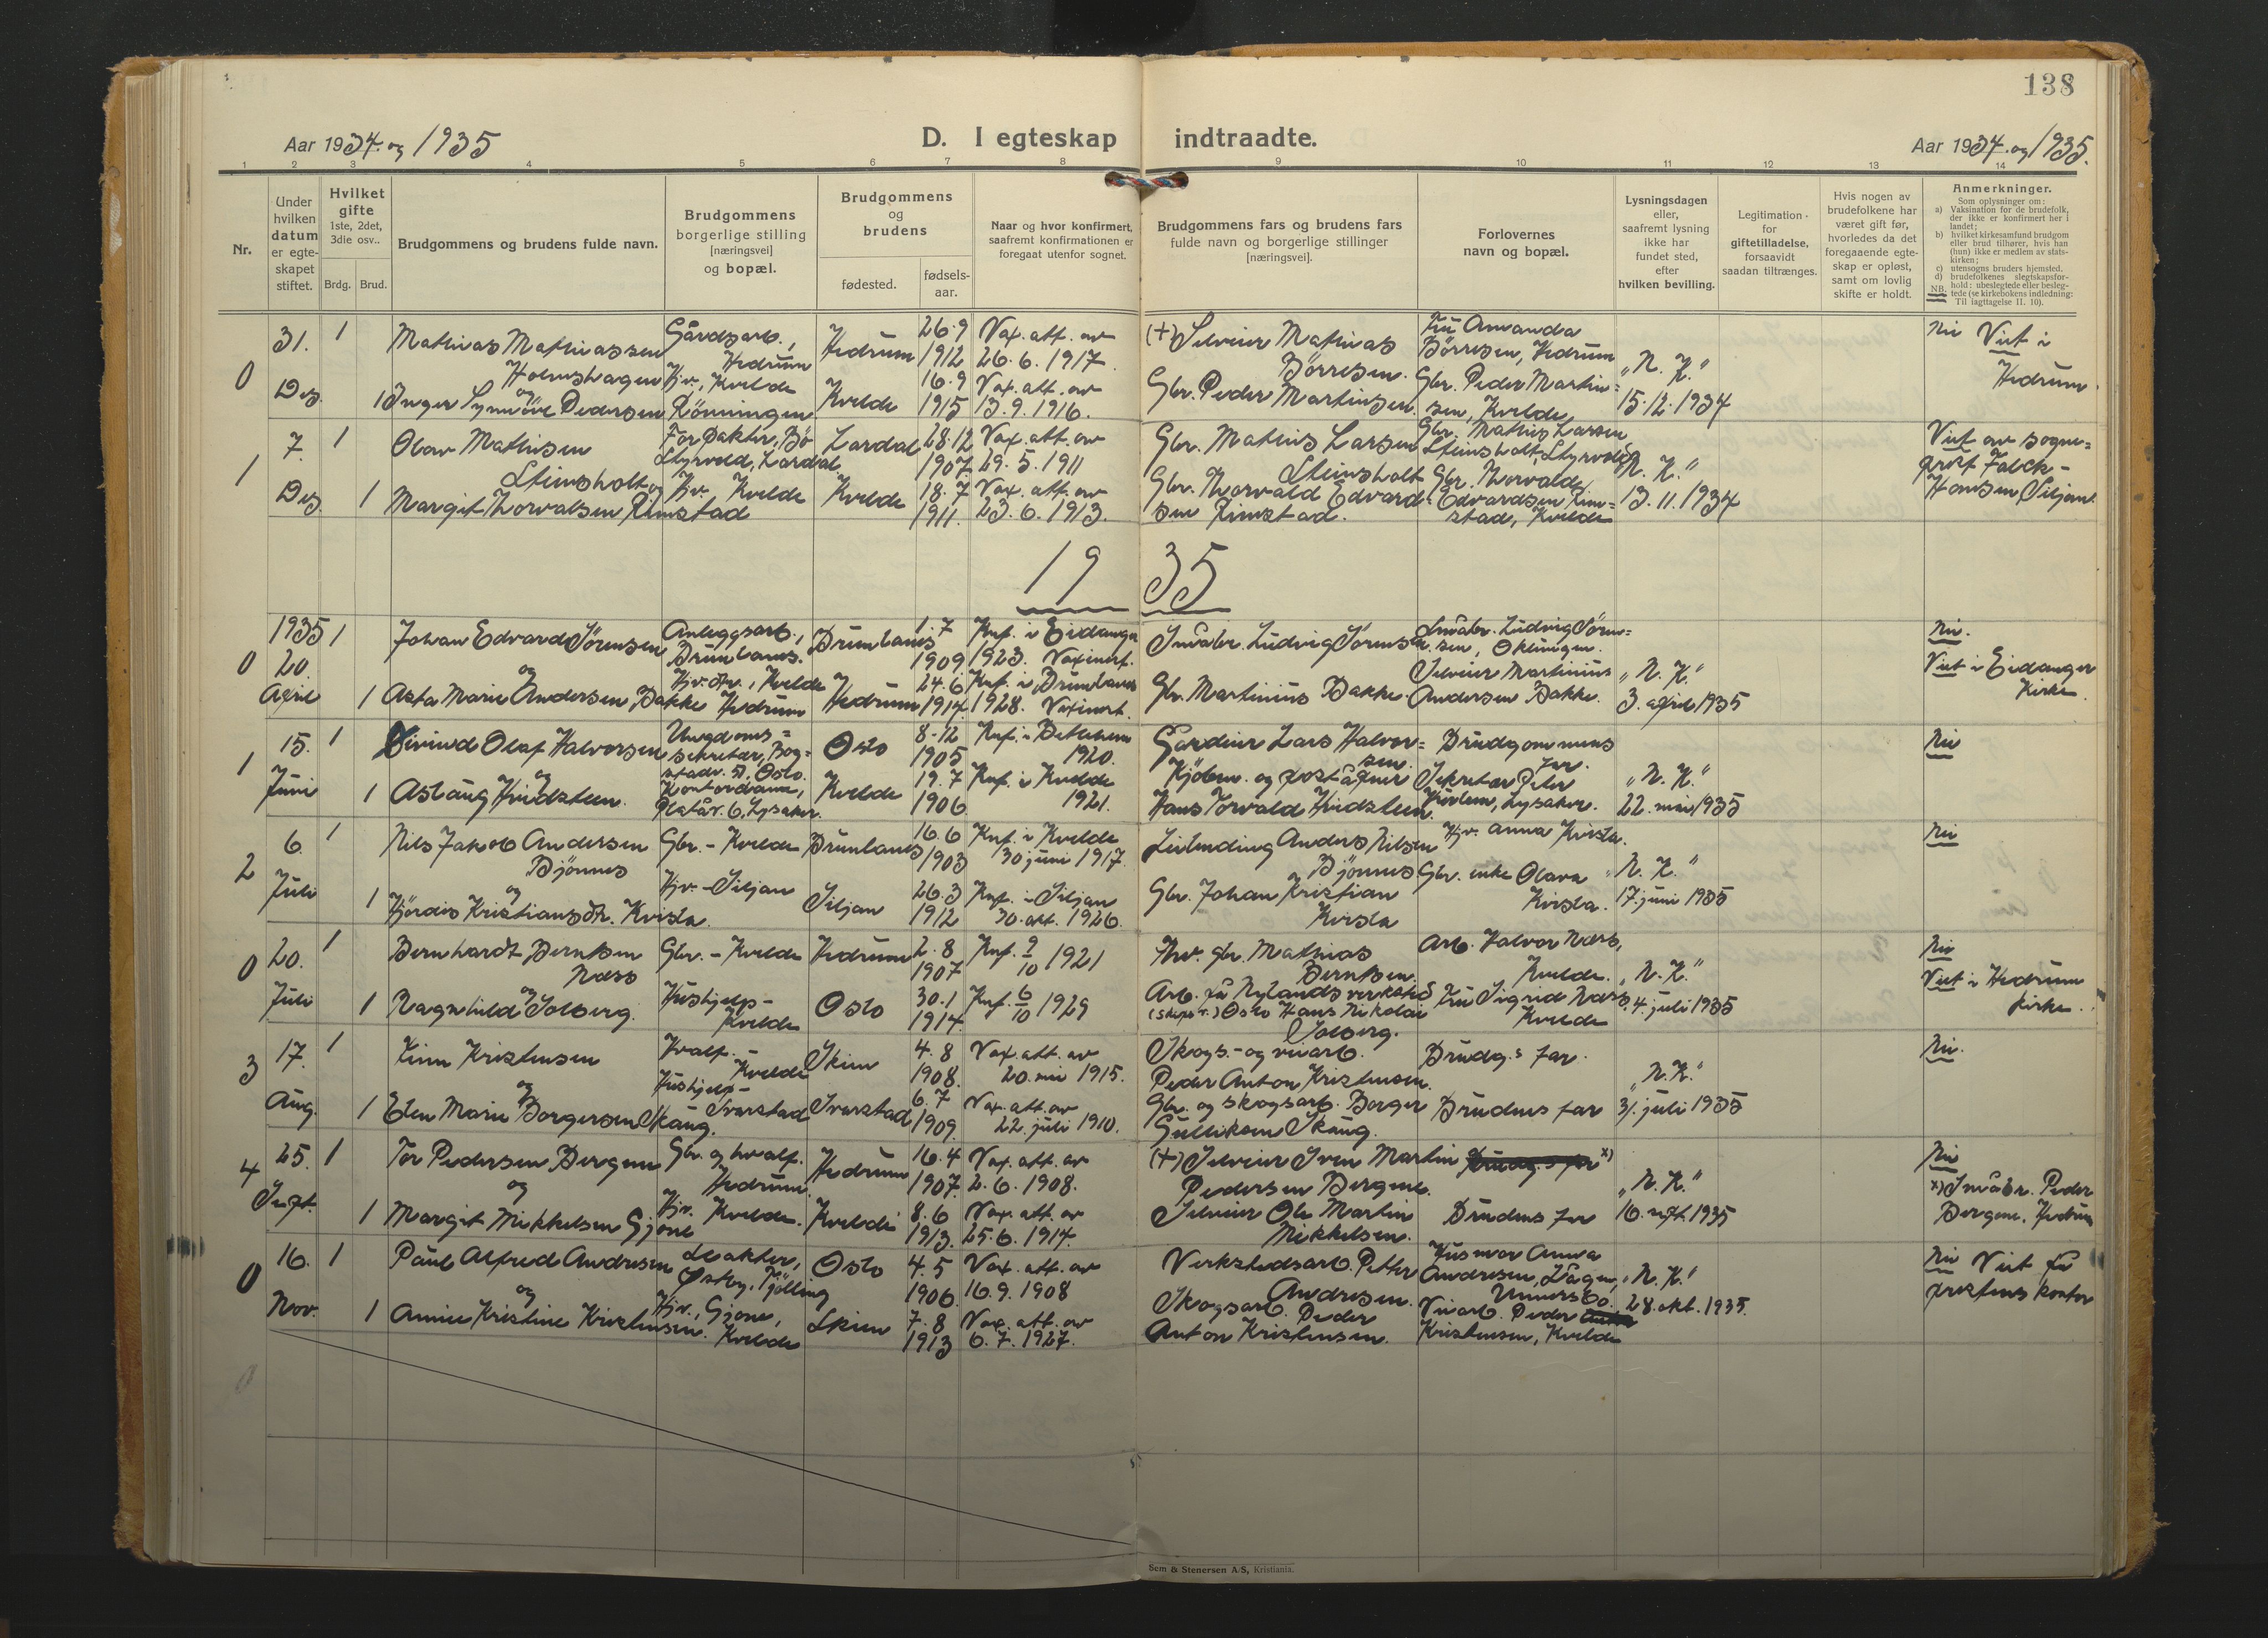 138
Aar 1934. og 1935
D. I egteskap indtraadte.
Aar 1934. og 1935.
1 2 3 4 5 6 7 8 9 10 11 12 13 14
Nr.
Under hvilken datum er egte-skapet stiftet.
Hvilket gifte
1ste, 2det, 3die osv..
Brdg. Brud.
Brudgommens og brudens fulde navn.
Brudgommens
borgerlige stilling
[næringsvei]
og bopæl.
Brudgommens
og
brudens
fødested.
fødsels-
aar.
Naar og hvor konfirmert,
saafremt konfirmationen er
foregaat utenfor sognet.
Brudgommens fars og brudens fars
fulde navn og borgerlige stillinger
[næringsvei].
Forlovernes
navn og bopæl.
Lysningsdagen
eller,
saafremt lysning
ikke har
fundet sted,
efter
hvilken bevilling.
Legitimation
for
giftetilladelse,
forsaavidt
saadan tiltrænges.
Hvis nogen av
brudefolkene har
været gift før,
hvorledes da det
foregaaende egte-
skap er opløst,
samt om lovlig
skifte er holdt.
Anmerkninger.
Som oplysninger om:
a) Vaksination for de brudefolk,
der ikke er konfirmert her i
landet;
b) hvilket kirkesamfund brudgom
eller brud tilhører, hvis han
(hun) ikke er medlem av stats-
kirken;
c) utensogns bruders hjemsted.
d) brudefolkenes slegtskapsfor-
hold: ubeslegtede eller besleg-
tede (se kirkebokens indledning:
Til iagttagelse II. 10).
NB.
0
31. Des.
1
Mathias Mathiassen
Holmshagen
og
1 Inger Synnöve Pedersen
Gårdsarb.,
Hedrum
Hjv., Kvelde
Rönningen
Hedrum
Kvelde
26.9
1912
16.9
1915
Vax. att. av
26.6.1917.
Vax. att. av
13.9.1916.
(+) Selveier Mathias
Börresen.
Gbr. Peder Martinsen.
Fru Amanda
Börresen, Hedrum
Gbr. Peder Martin=
sen, Kvelde
"N. K."
15.12.1934
Nei Viet i
Hedrum.
1
7. Des
1
Olav Mathisen
Steinsholt og
1 Margit Thorvalsen Rimstad
Forpakter, Bö
Styrvold, Lardal
Hjv. Kvelde
Lardal
Kvelde
28.12
1907
18.7
1911.
Vax. att. av
29.5.1911
Vax. att. av
23.6.1913.
Gbr. Mathias Larsen
Steinsholt
Gbr. Thorvald Edvard-
sen Rimstad.
Gbr. Mathias Larsen
Steinsholt, Styrvold
Gbr. Thorvald
Edvardsen Rim=
stad, Kvelde
"N. K."
13.11.1934
Viet av sogne=
prest Falck-
Hansen, Siljan.
19 35
0
1935
20. April
1
Johan Edvard Sörensen
og
1 Asta Marie Andersen Bakke
Anleggsarb.,
Brunlanes.
Hjv. dtr., Kvelde
Hedrum
Brunlanes
Hedrum
1.7
1909
24.6
1914.
Knf. i Eidanger
1923. Vaxinert.
Knf. i Brunlanes
1928. Vaxinert.
Småbr. Ludvig Sörensen
Gbr. Martinius Bakke.
Småbr. Ludvig Sören=
sen, Oklungen.
Selveier Martinius
Andersen Bakke.
"N. K."
3. april 1935
Nei.
Viet i Eidanger
Kirke.
1
15. Juni
1
Eivind Olaf Halvorsen
og
1 Aslaug Hvidsteen.
Ungdoms=
sekretær, Bog=
stadv. 51, Oslo.
Kontordame,
Platåv. 6, Lysaker.
Oslo
Kvelde
8.12
1905
19.7
1906
Knf. i Betlehem
1920.
Knf. i Kvelde
1921.
Gardeier Lars Halvor=
sen.
Kjöbm. og poståpner
Hans Torvald Hvidsteen
Brudgommens
far.
Sekretær Peter
Lysaker.
"N. K."
22. mai 1935
Nei
2
6. Juli
1
Nils Jakob Andersen
Bjönnes
og
1 Hjördis Kristiansdtr. Kvista.
Gbr. - Kvelde
Hjv. - Siljan
Brunlanes
Siljan
16.6
1903
26.3
1912
Knf. i Kvelde
30 juni 1917.
Knf. i Siljan
30. okt. 1926.
Leilending Anders Nilsen
Bjönnes
Gbr. Johan Kristian
Kvista
Hjv. Anna Kvista.
Gbr. enke Olava
Kvista.
"N. K."
17. juni 1935
Nei
0
20. Juli
1
Bernhardt Berntsen
Næss
og
1 Ragnhild Solberg.
Gbr. - Kvelde
Hushjelp -
Kvelde
Hedrum
Oslo
2.8
1907
30.1
1914.
Knf. 9/10 1921
Knf. 6/10 1929
Fhv. gbr. Mathias
Berntsen.
Arb. på Nylands verksted
(skips v.) Oslo Hans Nikolai
Solberg.
Arb. Halvor Næss,
Kvelde.
Fru Sigrid Næss
Kvelde
"N. K."
4. juli 1935
Nei
Viet i Hedrum
kirke.
3
17. Aug.
1
Finn Kristensen
og
1 Elen Marie Borgersen Skaug.
Hvalf. -
Kvelde
Hushjelp -
Svarstad
Skien
Svarstad
4.8
1908.
6.7
1909.
Vax. att. av
20. mai 1915.
Vax. att. av
22. juli 1910.
Skogs- og veiarb.
Peder Anton Kristensen.
Gbr. og skogsarb. Borger
Gulliksen Skaug.
Brudg.s far.
Brudens far
"N. K."
31. juli 1935
Nei.
4
25. Sept.
1
Tor Pedersen Bergene
og
1 Margit Mikkelsen Gjone
Gbr. og hvalf.
Hedrum.
Hjv. Kvelde.
Hedrum
Kvelde
16.4
1907.
8.6
1913.
Vax. att. av
2.6.1908.
Vax. att. av
25.6.1914.
(+) Selveier Sven Martin
Pedersen Bergene.
Selveier Ole Martin
Mikkelsen.
Brudg.s far x)
Brudens far
"N. K."
16. sept. 1935
Nei
x) Småbr. Peder
Bergene, Hedrum
0
16. Nov.
1
Paul Alfred Andresen
og
1 Annie Kristine Kristensen.
Slakter,
Østby, Tjölling
Hjv., Gjone,
Kvelde
Oslo
Skien
4.5
1906.
7.8
1913
Vax. att. av
16.9.1908
Vax. att. av
6.7.1927.
Verkstedsarb. Petter
Andresen.
Skogsarb. Peder
Anton Kristensen.
Husmor Anna
Andresen, Lågen,
Veiarb. Peder
Kristensen, Kvelde
"N. K."
28. okt. 1935.
Nei Viet på
prestens kontor
Sem & Stenersen A/S, Kristiania.